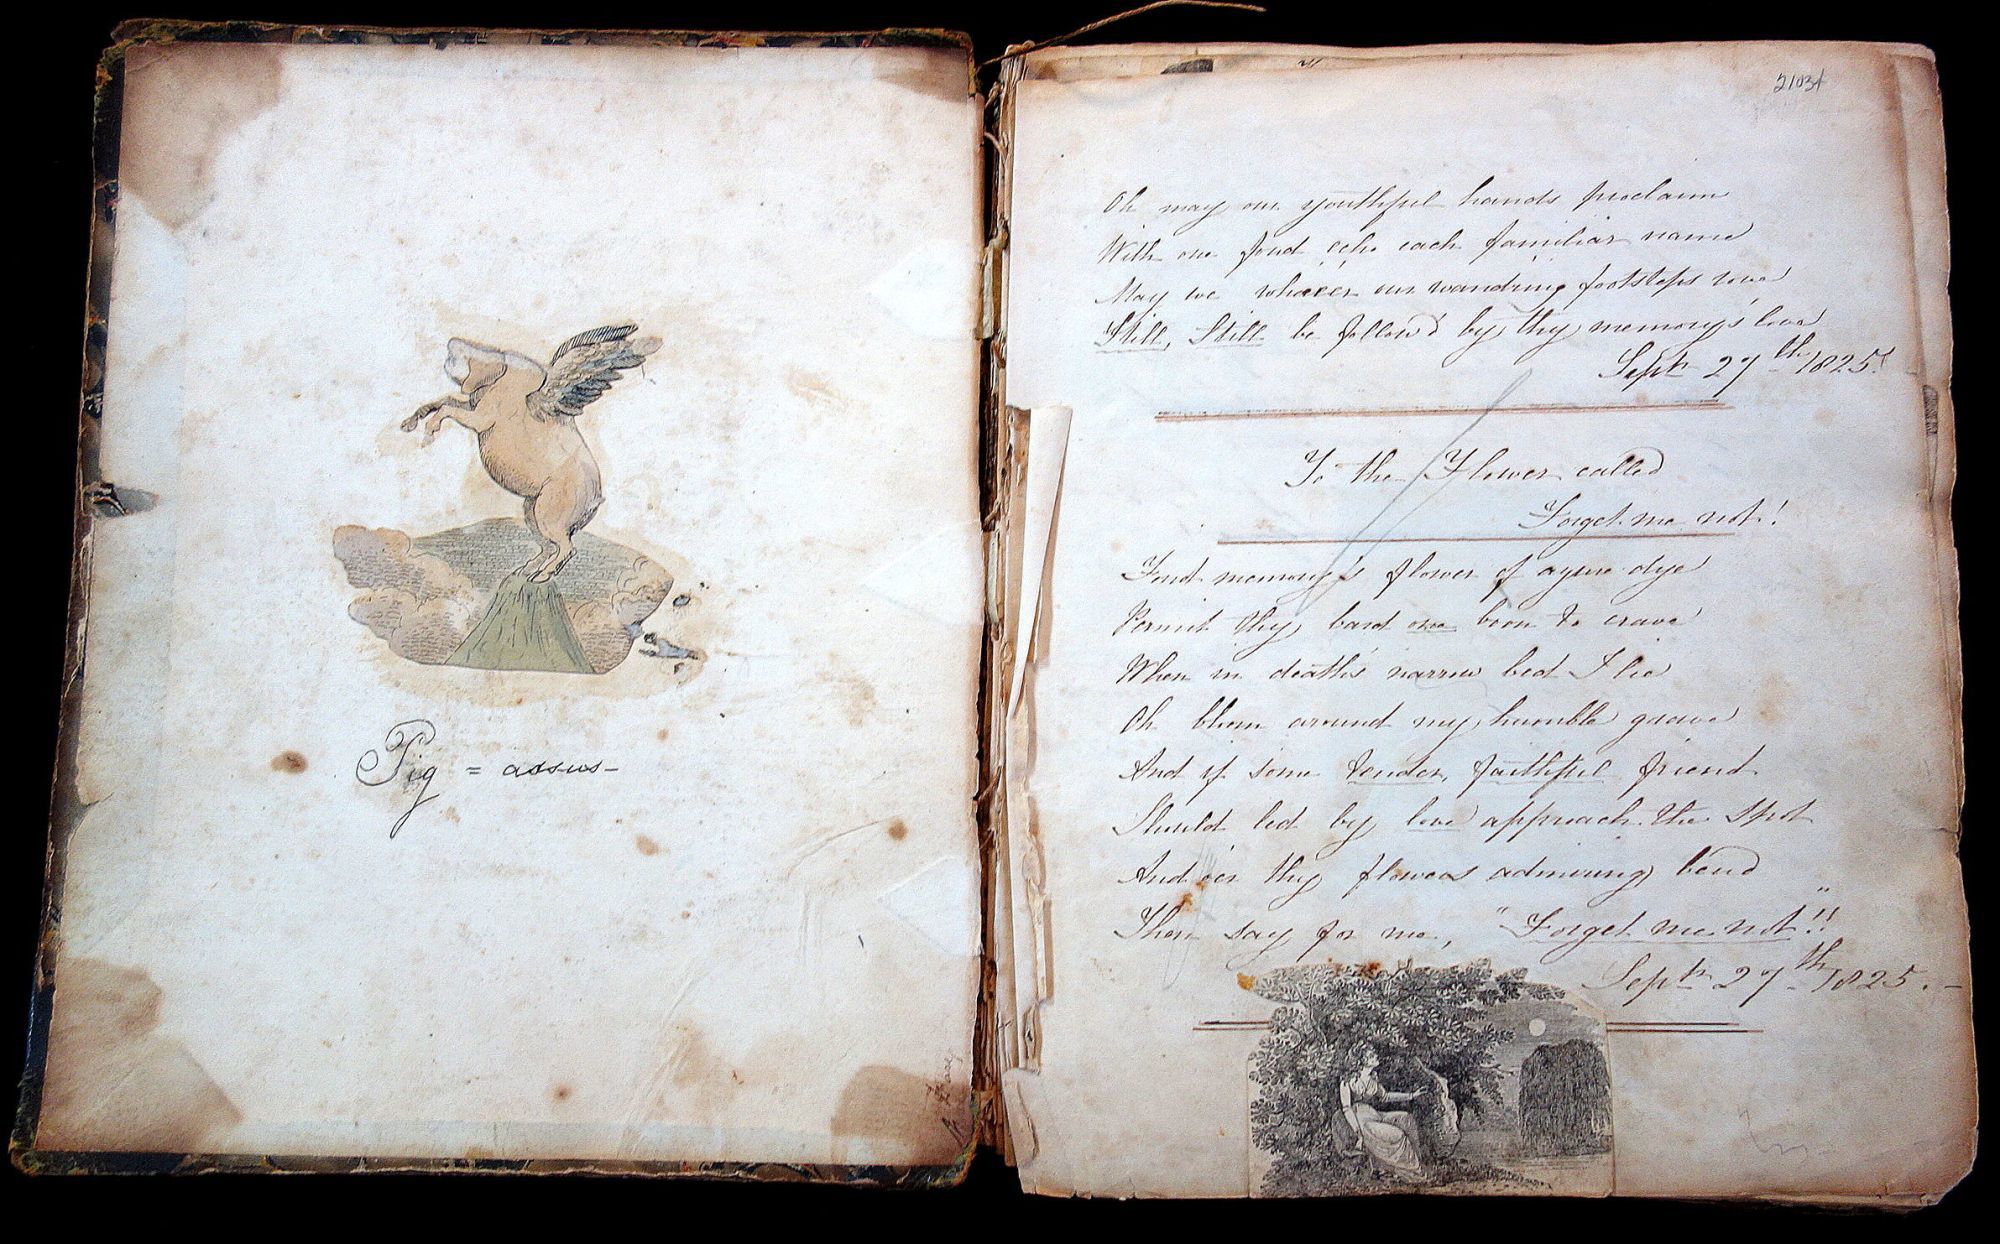 Pig = assus
2103
Oh may our youthful hands proclaim
With one fond echo each familiar name
May we whate'er our wandring footsteps rove
Still, Still be follow'd by thy memory's love
Sept 27th 1825.
To the Flower called
Forget me not!
Fond memory's flower of azure dye
Permit thy bard one boon to crave
When in death's narrow bed I lie
Oh bloom around my humble grave
And if some tender, faithful friend
Should led by love approach the spot
And oer thy flowers admiring bend
Then say for me, "Forget me not"!!
Sept 27th 1825.